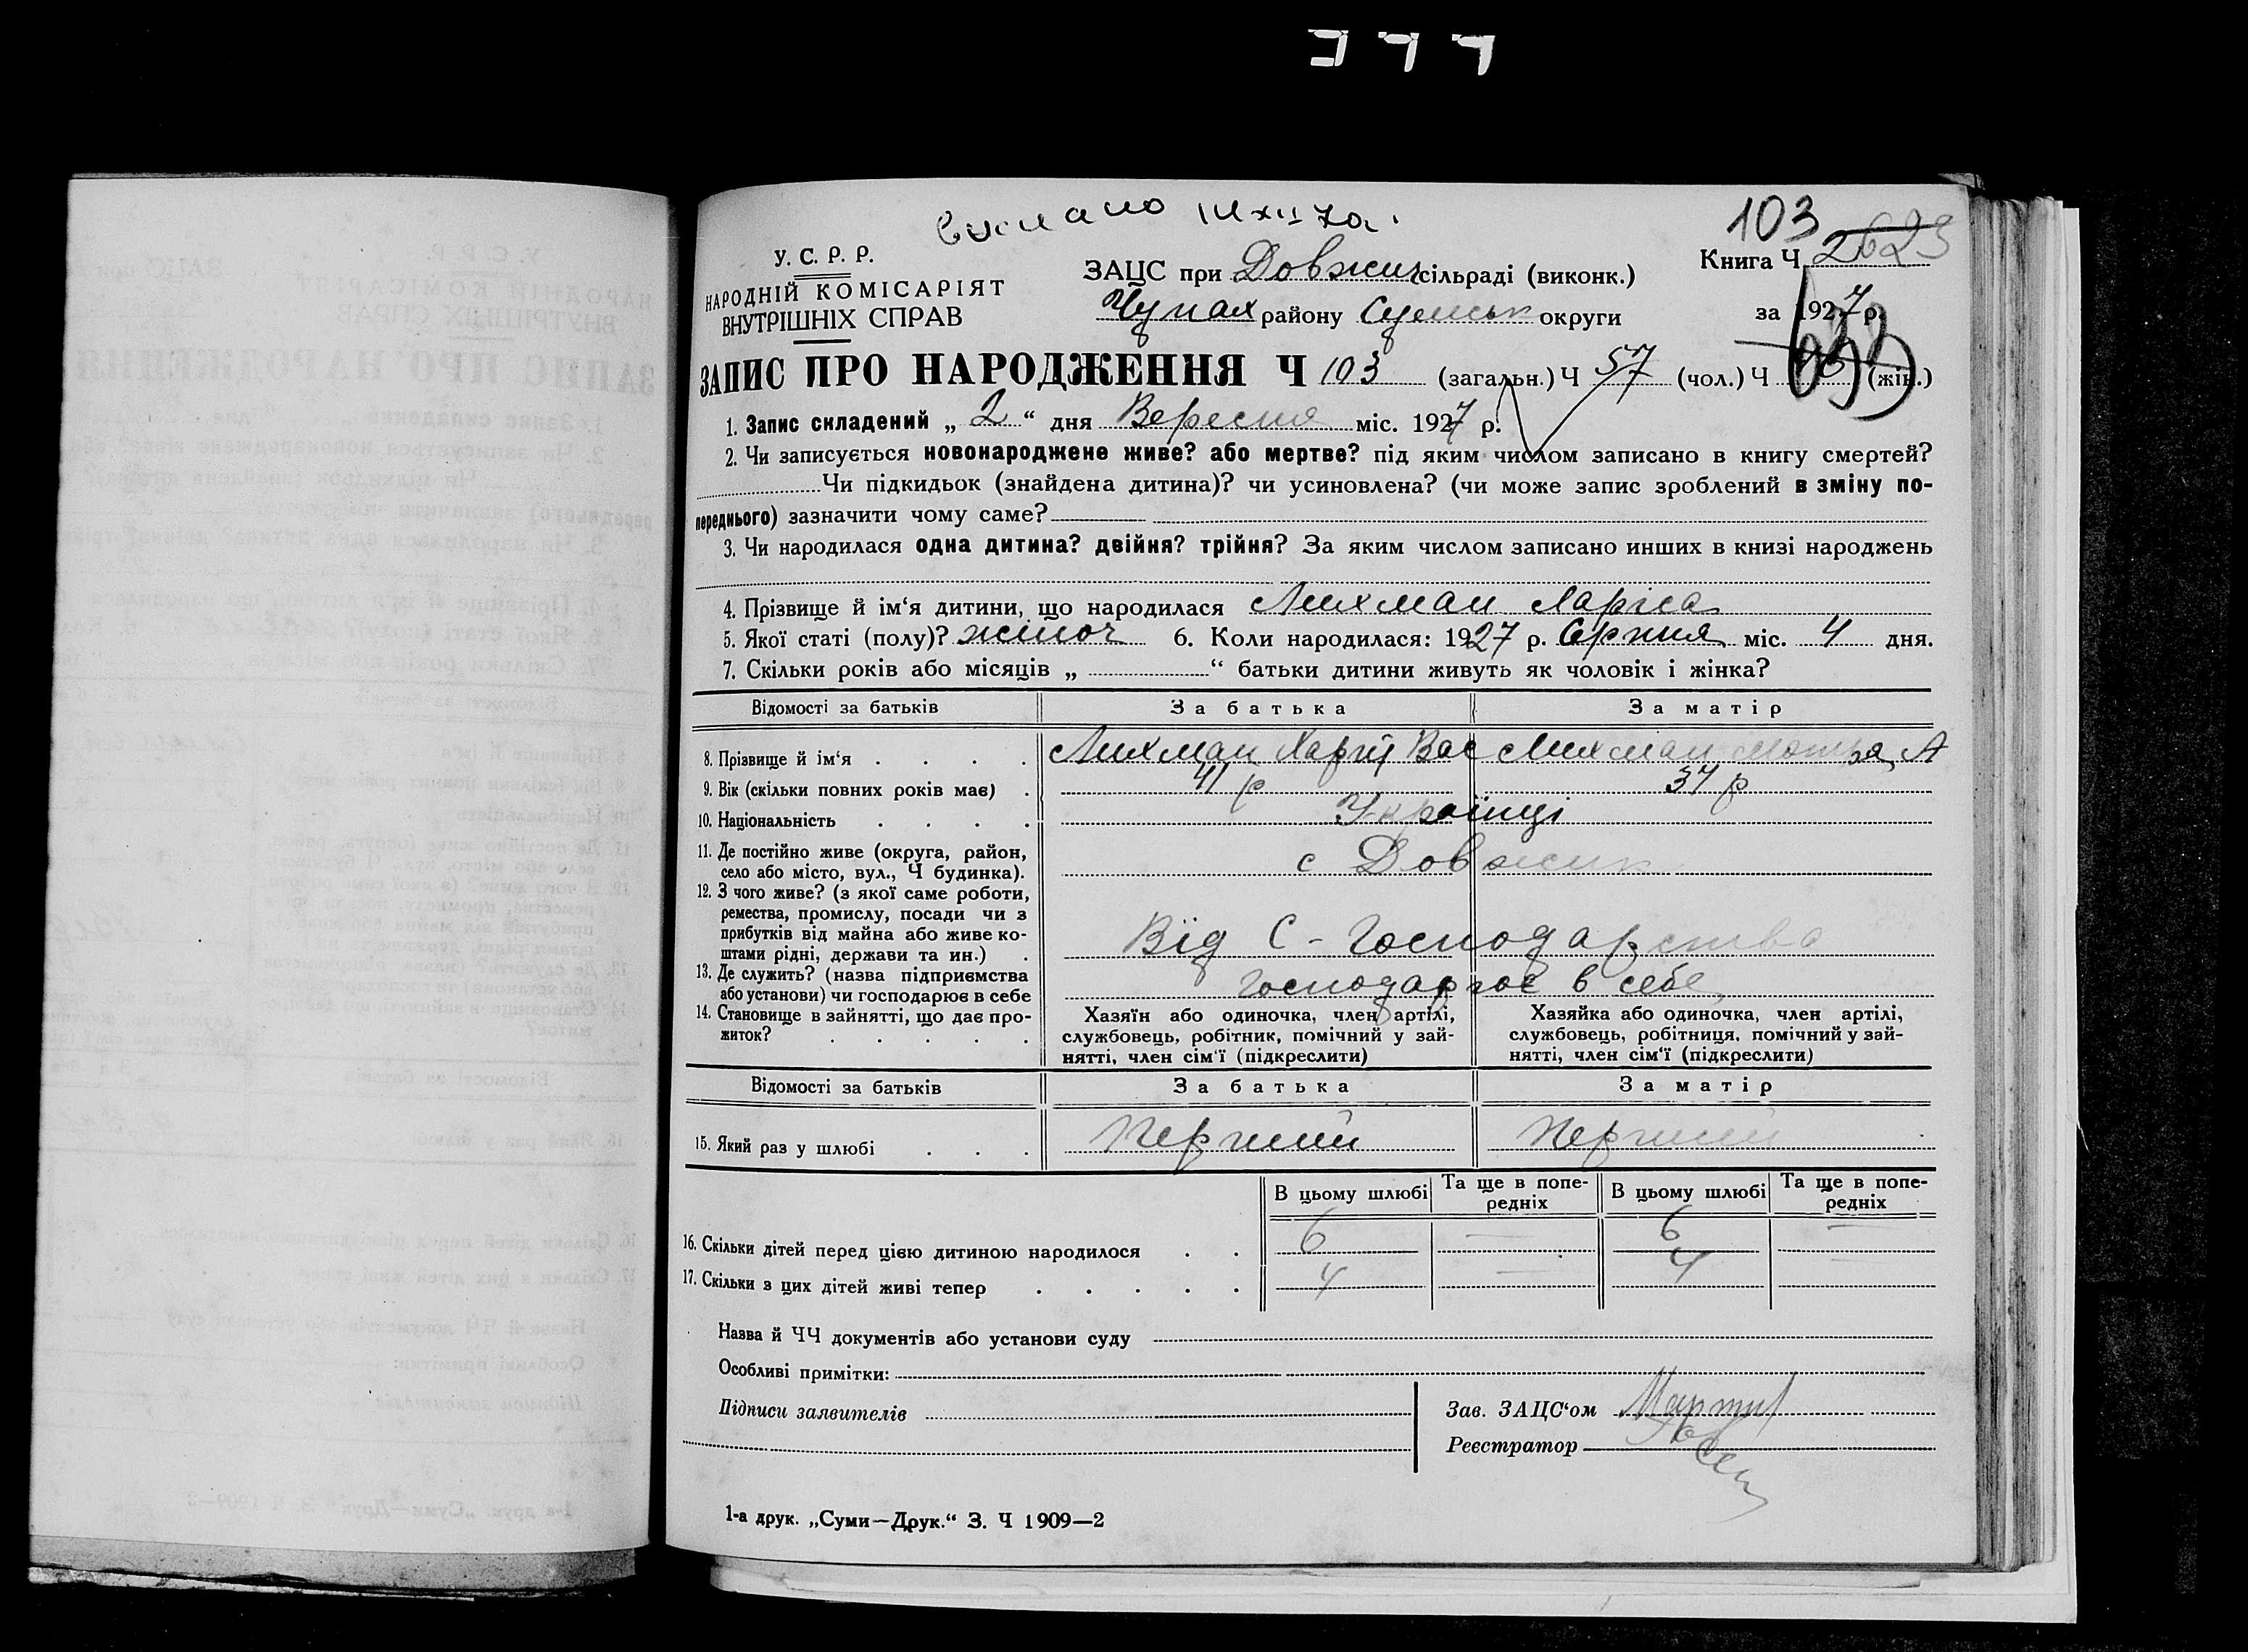 103
У. С. Р. Р.
НАРОДНІЙ КОМІСАРІЯТ
ВНУТРІШНІХ СПРАВ
ЗАЦС при Довжич сільраді (виконк.)
Чупах району Сумськ округи
Книга Ч 2
за 1927 р.
ЗАПИС ПРО НАРОДЖЕННЯ Ч 103 (загальн.) Ч 57 (чол.) Ч (жін.)
1. Запис складений „ 2 “ дня Вересня міс. 1927 р.
2. Чи записується новонароджене живе? або мертве? під яким числом записано в книгу смертей?
Чи підкидьок (знайдена дитина)? чи усиновлена? (чи може запис зроблений в зміну по-
переднього) зазначити чому саме?
3. Чи народилася одна дитина? двійня? трійня? За яким числом записано инших в книзі народжень
4. Прізвище й ім‘я дитини, що народилася Лихман Ларіса
5. Якої статі (полу)? жіноч 6. Коли народилася: 1927 р. Серпня міс. 4 дня.
7. Скільки років або місяців „ “ батьки дитини живуть як чоловік і жінка?
Відомості за батьків За батька За матір
8. Прізвище й ім‘я Лихман Харій Вас Лихман А
9. Вік (скільки повних років має) 41 р 37 р
10. Національність Українці
11. Де постійно живе (округа, район,
село або місто, вул., Ч будинка). с Довжик
12. З чого живе? (з якої саме роботи,
ремества, промислу, посади чи з
прибутків від майна або живе ко-
штами рідні, держави та ин.) Від С - Господарства
13. Де служить? (назва підприємства
або установи) чи господарює в себе Господарює в себе
14. Становище в зайнятті, що дає про-
житок?
Хазяїн або одиночка, член артілі,
службовець, робітник, помічний у зай-
нятті, член сім‘ї (підкреслити)
Хазяйка або одиночка, член артілі,
службовець, робітниця, помічний у зай-
нятті, член сім‘ї (підкреслити)
Відомості за батьків За батька За матір
15. Який раз у шлюбі Перший Перший
В цьому шлюбі Та ще в попе-
редніх В цьому шлюбі Та ще в попе-
редніх
16. Скільки дітей перед цією дитиною народилося 6 — 6 —
17. Скільки з цих дітей живі тепер 4 — 4 —
Назва й ЧЧ документів або установи суду
Особливі примітки:
Підписи заявителів
Зав. ЗАЦС‘ом
Реєстратор
1-а друк. „Суми—Друк.“ З. Ч 1909—2